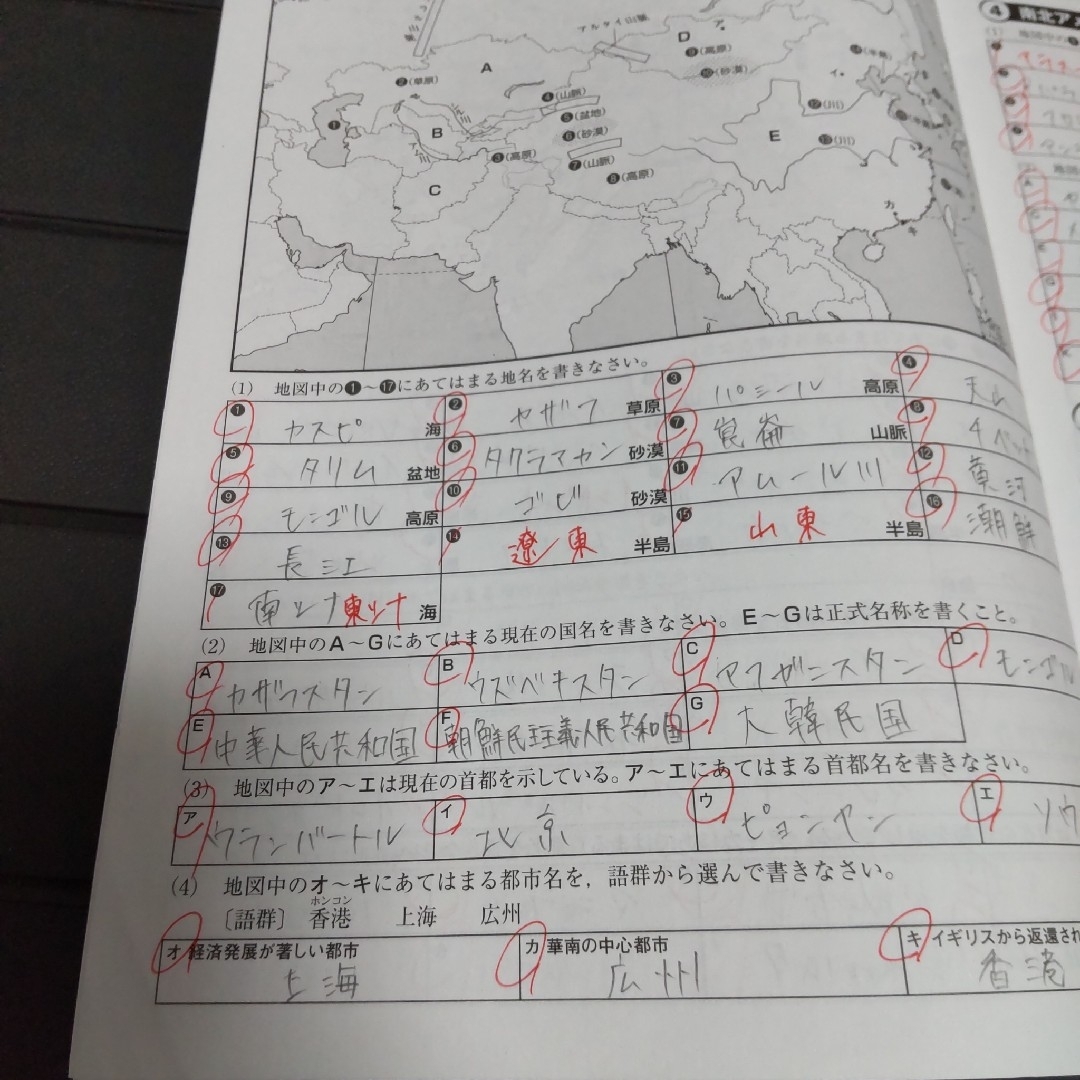 アルタイ山脈
ア
D
❾(高原)
❿(砂漠)
A
❷(草原)
❹(山脈)
イ
⓬(川)
❶
❺(盆地)
B
❻(砂漠)
E
⓭(川)
❸(高原)
❼(山脈)
C
❽(高原)
カ
キ
❹ 南北ア
(1) 地図中の❶~⓱にあてはまる地名を書きなさい。
❶ カスピ 海 ❷ カザフ 草原 ❸ パミール 高原 ❹ 天山
❺ タリム 盆地 ❻ タクラマカン 砂漠 ❼ 崑崙 山脈 ❽ チベット
❾ モンゴル 高原 ❿ ゴビ 砂漠 ⓫ アムール川 ⓬ 黄河
⓭ 長江 ⓮ 遼東 半島 ⓯ 山東 半島 ⓰ 潮鮮
⓱ 南シナ 東シナ 海
(2) 地図中のA~Gにあてはまる現在の国名を書きなさい。E~Gは正式名称を書くこと。
A カザフスタン B ウズベキスタン C アフガニスタン D モンゴル
E 中華人民共和国 F 朝鮮民主主義人民共和国 G 大韓民国
(3) 地図中のア~エは現在の首都を示している。ア~エにあてはまる首都名を書きなさい。
ア ウランバートル イ 北京 ウ ピョンヤン エ ソウ
(4) 地図中のオ~キにあてはまる都市名を、語群から選んで書きなさい。
ホンコン
〔語群〕 香港 上海 広州
オ 経済発展が著しい都市 カ 華南の中心都市 キ イギリスから返還され
上海 広州 香港